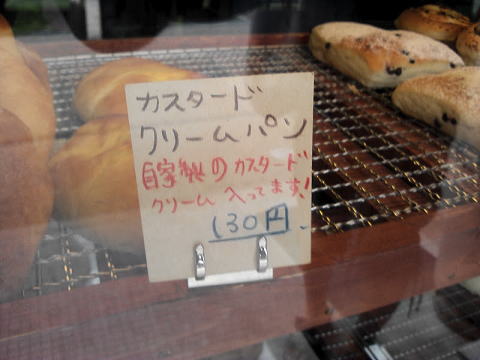 カスタード
クリームパン
自家製のカスタード
クリーム入ってます!
130円